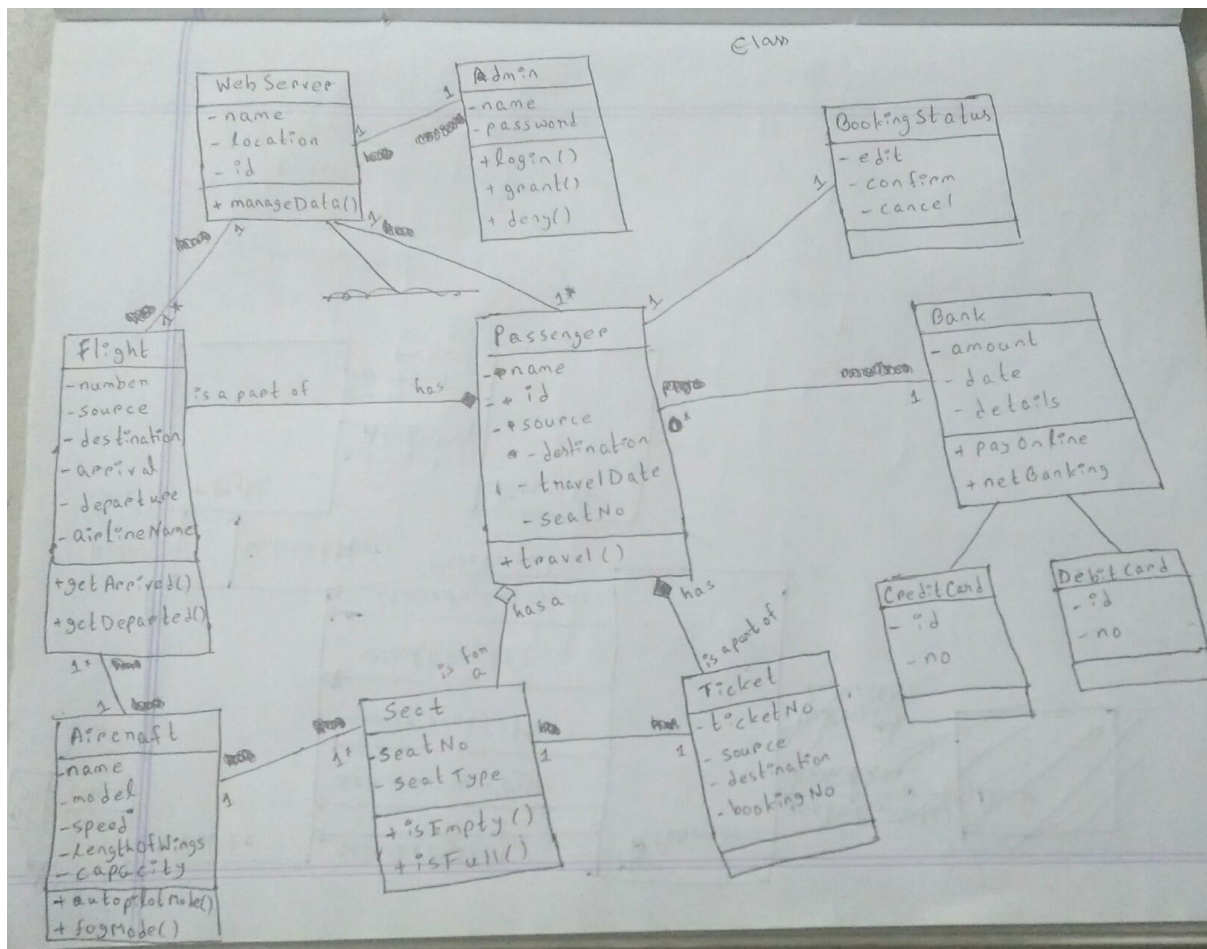 Class
WebServer
- name
- location
- id
+ manageData()
Admin
- name
- password
+ login()
+ grant()
+ deny()
1
1
BookingStatus
- edit
- confirm
- cancel
1
1
1
1*
1
1*
Flight
- number
- source
- destination
- arrival
- departure
- airlineName
+ getArrived()
+ getDeparted()
is a part of
has
Passenger
- name
- id
- source
- destination
- travelDate
- seatNo
+ travel()
0*
1
Bank
- amount
- date
- details
+ payOnline
+ netBanking
CreditCard
- id
- no
DebitCard
- id
- no
has a
is for
a
has
is a part of
1*
1
Aircraft
- name
- model
- speed
- lengthOfWings
- capacity
+ autopilotMode()
+ fogMode()
1
1*
Seat
- seatNo
- seatType
+ isEmpty()
+ isFull()
1
1
Ticket
- ticketNo
- source
- destination
- bookingNo